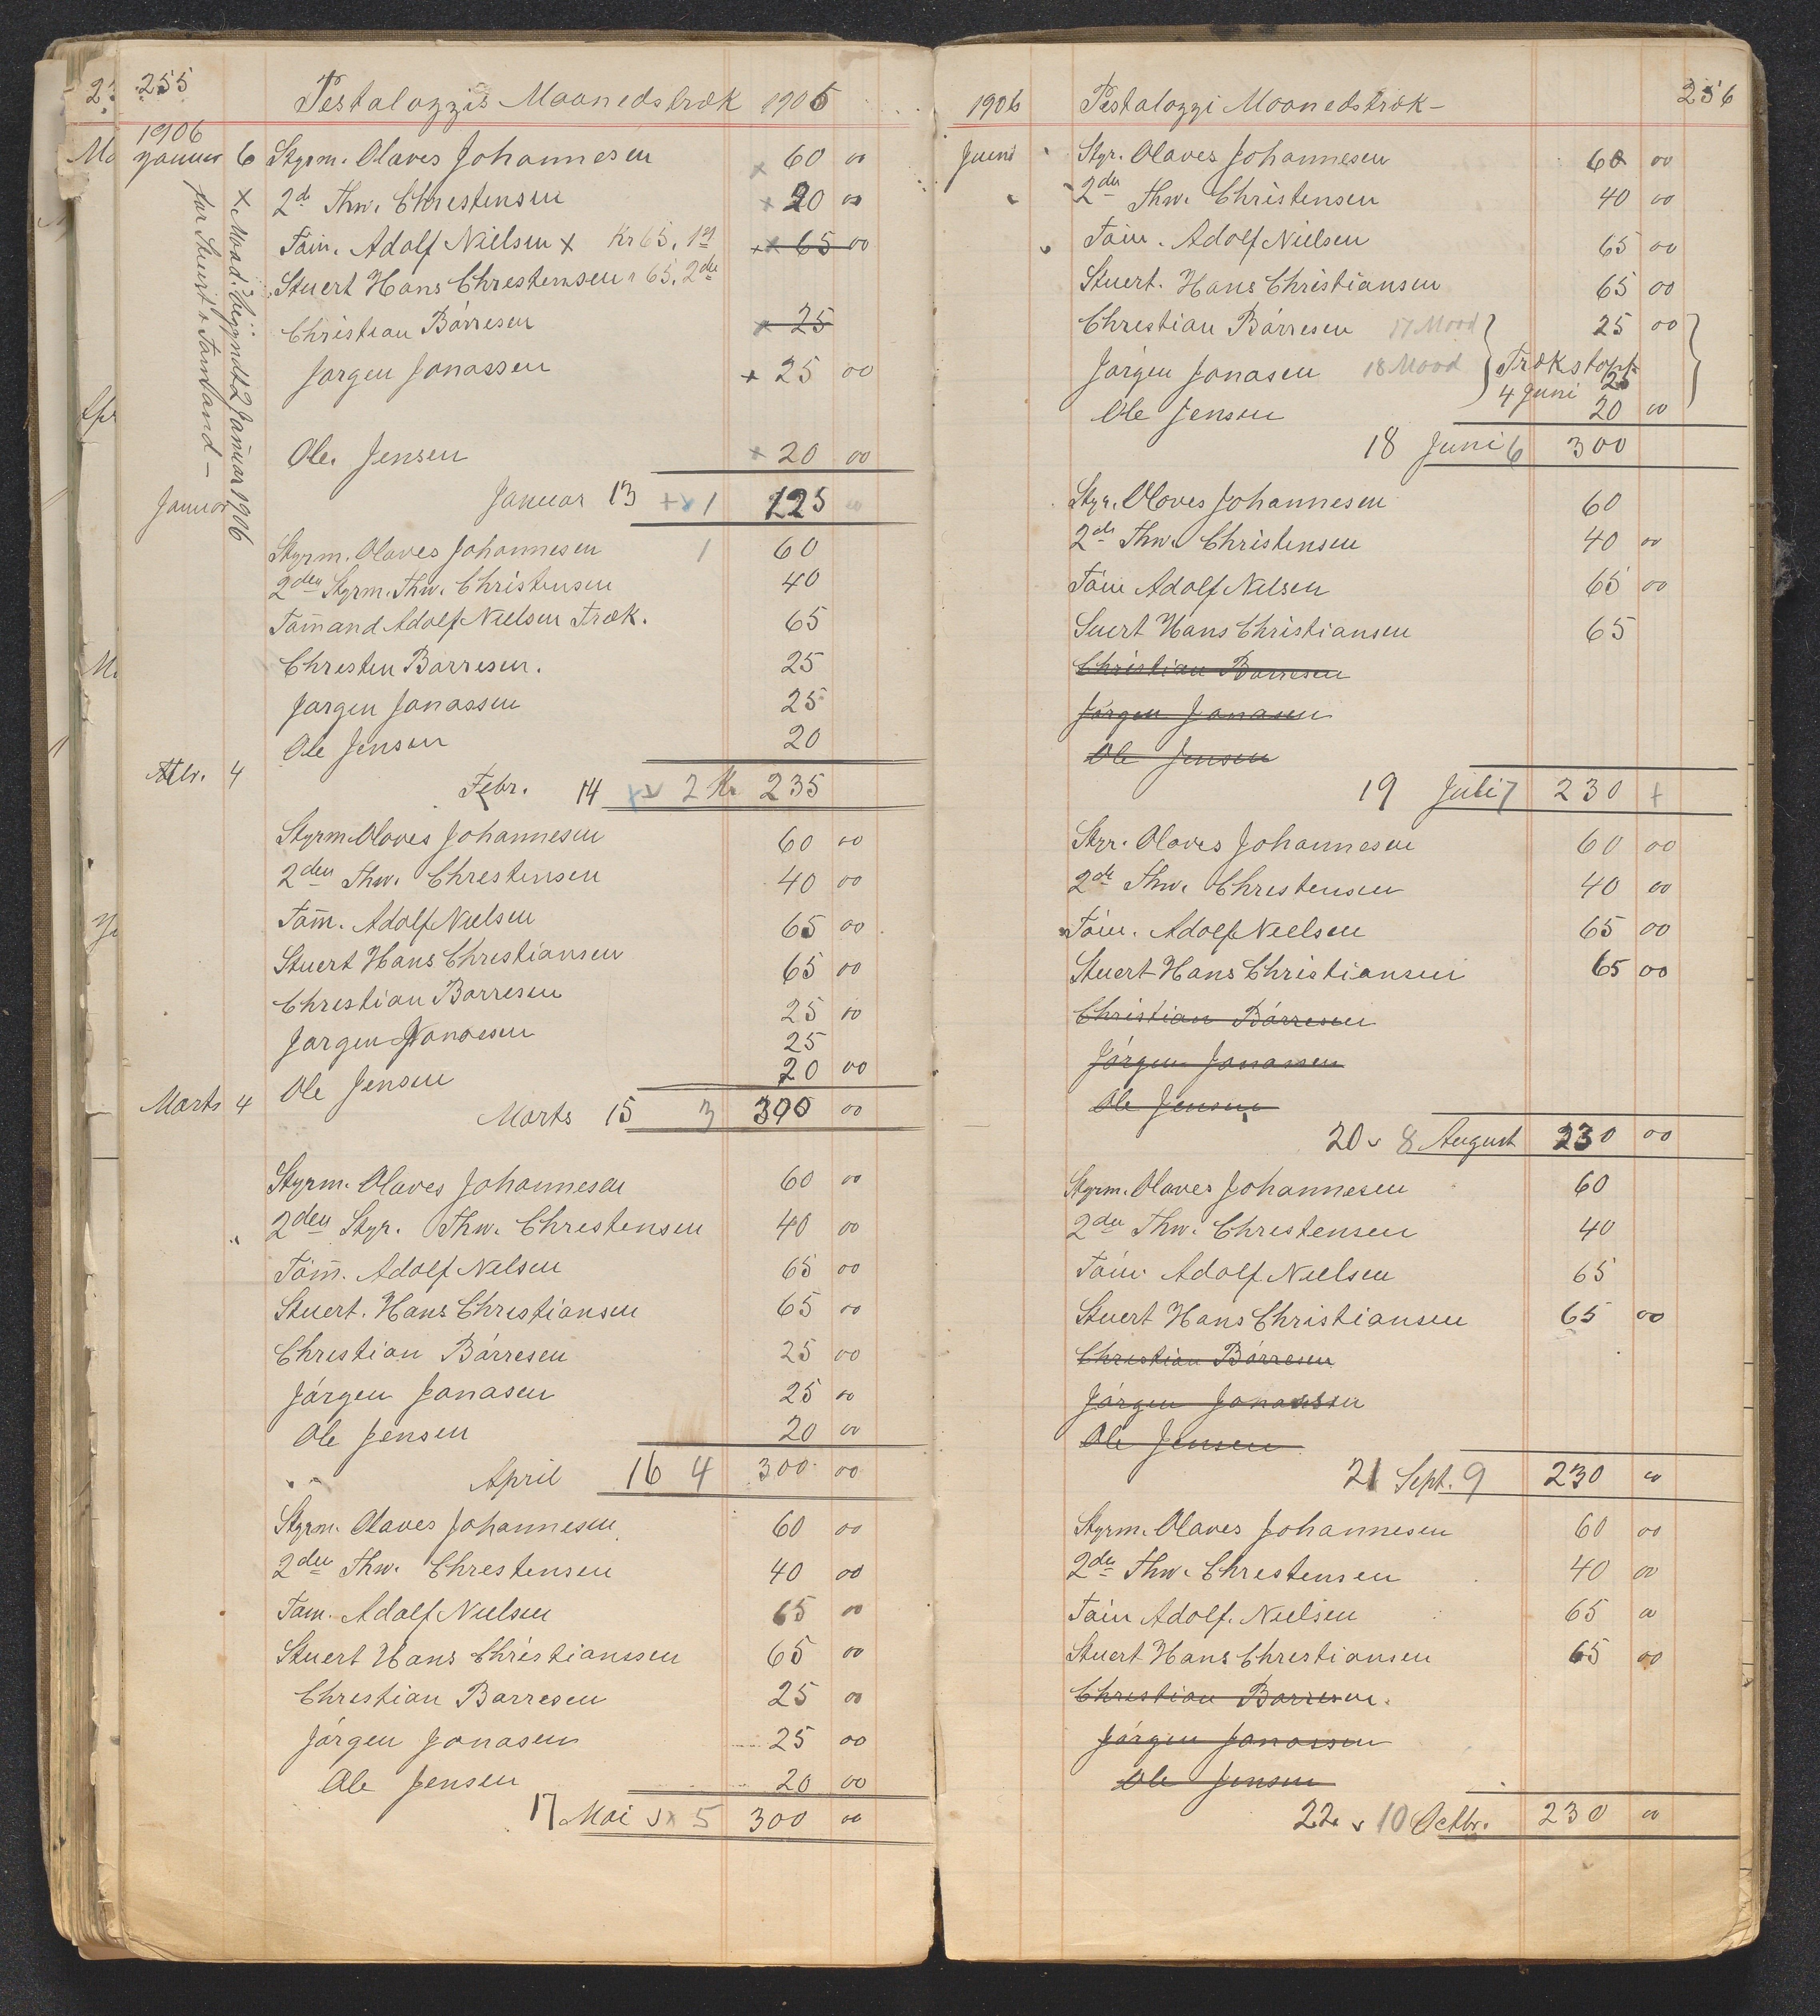 255
Pestalozzis Maanedstræk 1906
1906
Januar 6 Styrm. Olaves Johannesen x 60 00
2d Thw. Christensen x 20 00
Töm. Adolf Nielsen x Kr 65. 1st xx 65 00
Stuert Hans Christensen " 65. 2de
Christian Börresen x 25
Jørgen Jonassen x 25 00
Ole. Jensen x 20 00
x Maad. Begyndt 2 Januar 1906
for Stuert & Tømmand –
Januar
Januar 13 + x 1 125 00
Styrm. Olaves Johannesen 1 60
2den Styrm. Thw. Christensen 40
Tömand Adolf Nielsen Træk. 65
Christen Borresen. 25
Jørgen Jonassen 25
Ole Jensen 20
4
Febr. 14 x v 2 Kr 235
Styrm Olaves Johannesen 60 00
2den Thw. Christensen 40 00
Töm. Adolf Nielsen 65 00
Stuert Hans Christiansen 65 00
Christian Borresen 25 00
Jørgen Jonasen 25
Ole Jensen 20 00
Marts 4
Marts 15 3 300 00
Styrm. Olaves Johannesen 60 00
2den Styr. Thw. Christensen 40 00
Töm. Adolf Nelsen 65 00
Stuert. Hans Christiansen 65 00
Christian Börresen 25 00
Jörgen Jonasen 25 00
Ole Jensen 20 00
April 16 4 300 00
Styrm. Olaves Johannesen 60 00
2den Thw. Christensen 40 00
Tom. Adolf Nielsen 65 00
Stuert Hans Christianssen 65 00
Christian Borresen 25 00
Jörgen Jonasen 25 00
Ole Jensen 20 00
17 Mai v x 5 300 00
1906 Pestalozzi Maanedstræk – 256
Juni Styr. Olaves Johannesen 60 00
2den Thw. Christensen 40 00
Töm. Adolf Nielsen 65 00
Stuert. Hans Christiansen 65 00
Christian Börresen 17 Maad 25 00
Jörgen Jonasen 18 Maad Trækstopp 25
Ole Jensen 4 Juni 20 00
18 Juni 6 300
Styr. Olaves Johannesen 60
2de Thw. Christensen 40 00
Töm Adolf Nelsen 65 00
Suert Hans Christiansen 65
Christian Borresen
Jörgen Jonasen
Ole Jensen
19 Juli 7 230 +
Styr. Olaves Johannesen 60 00
2de Thw. Christensen 40 00
Töm. Adolf Nielsen 65 00
Stuert Hans Christiansen 65 00
Christian Börresen
Jörgen Jonassen
Ole Jensen
20 v 8 August 230 00
Styrm. Olaves Johannesen 60
2den Thw. Christensen 40
Töm Adolf Nielsen 65
Stuert Hans Christiansen 65 00
Christian Börresen
Jörgen Jonassen
Ole Jensen
21 Sept. 9 230 00
Styrm. Olaves Johannesen 60 00
2de Thw. Christensen 40 00
Töm Adolf. Nielsen 65 00
Stuert Hans Christiansen 65 00
Christian Borresen.
Jörgen Jonassen
Ole Jensen
22 v 10 Octbr. 230 00